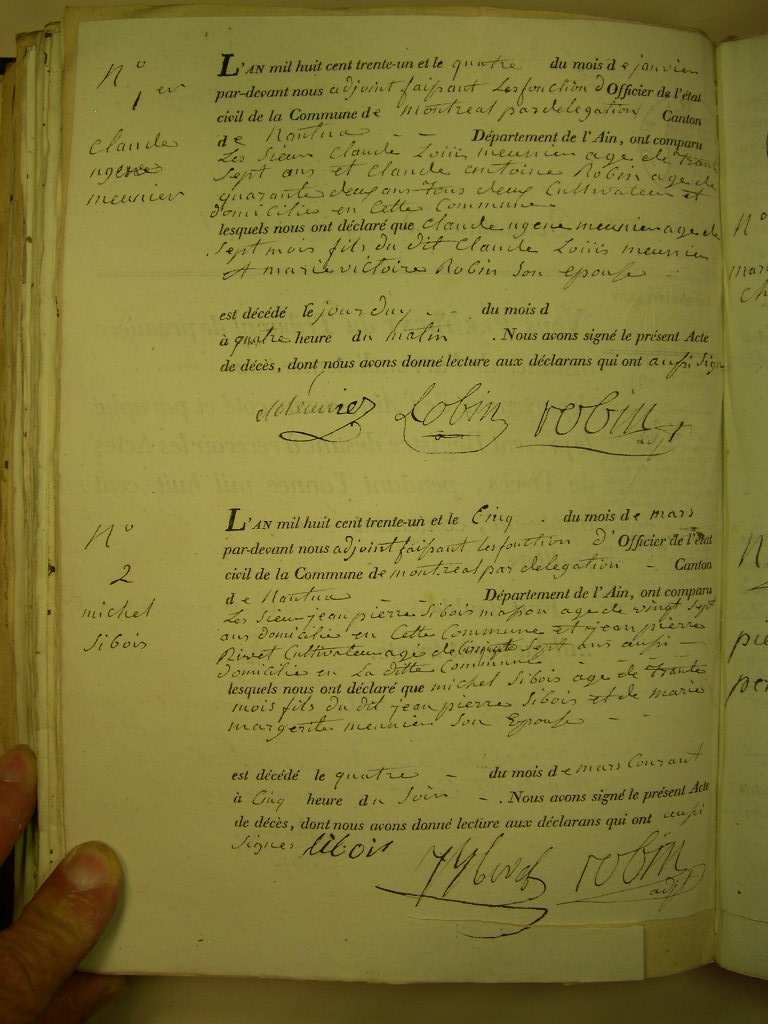 N° 1er
claude
ugene
meunier
L'AN mil huit cent trente-un et le quatre du mois de janvier
par-devant nous adjoint faisant les fonction d'Officier de l'état
civil de la Commune de montreal par delegation Canton
de Nantua - - Département de l'Ain, ont comparu
Les Sieur Claude Louis meunier age de trente
Sept ans et Claude antoine Robin age de
quarante deux ans tous deux Cultivateur et
domicilie en Cette Commune
lesquels nous ont déclaré que Claude ugene meunier age de
Sept mois fils du dit Claude Louis meunier
et marie victoire Robin Son epouse -
est décédé le jourduy - - du mois d
à quatre heure du matin . Nous avons signé le présent Acte
de décès, dont nous avons donné lecture aux déclarans qui ont aussi Signe
Robin Robin adjt
N° 2
michel
Sibois
L'AN mil huit cent trente-un et le Cinq - du mois de mars
par-devant nous adjoint faisant les fonction d'Officier de l'état
civil de la Commune de montreal par delegation - Canton
de Nantua - - Département de l'Ain, ont comparu
Les Sieur jean pierre Sibois masson age de vingt Sept
ans domicilie en Cette Commune et jean pierre
Rivet Cultivateur age de Cinquante Sept ans aussi
domicilie en La ditte Commune
lesquels nous ont déclaré que michel Sibois age de trente
mois fils du dit jean pierre Sibois et de marie
margerite meunier Son Epouse - -
est décédé le quatre - du mois de mars Courant
à Cinq heure du Soir - . Nous avons signé le présent Acte
de décès, dont nous avons donné lecture aux déclarans qui ont aussi
Signes Sibois robin adjt